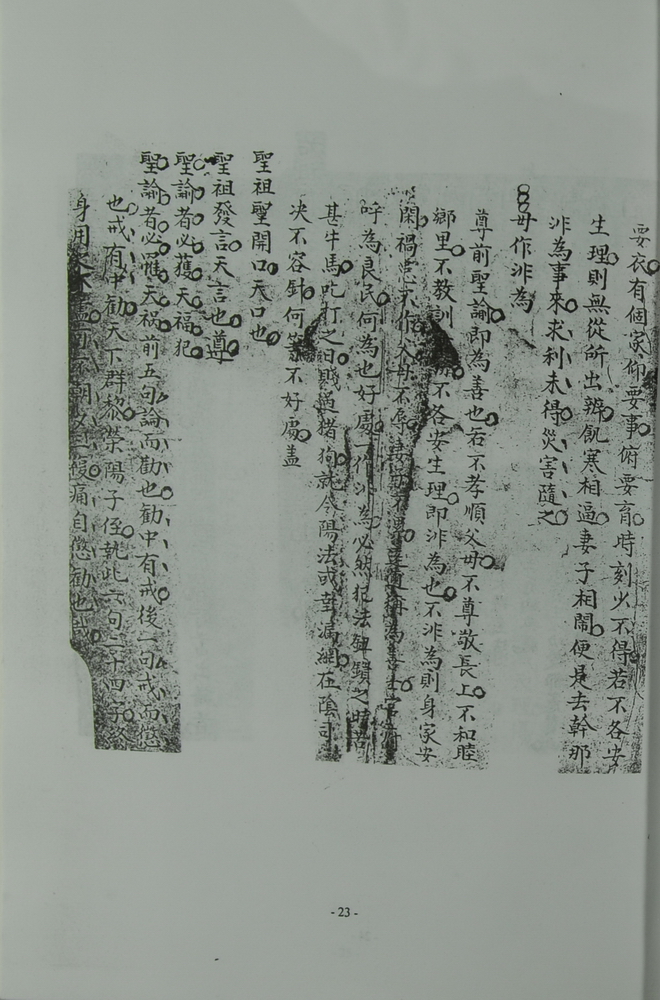 要衣有個家仰要事俯要育時刻少不得若不各安
生理則無從所出辨飢寒相逼妻子相鬧便是去幹那
非為事來求利未得災害隨之
毋作非為
尊前聖諭即為善也若不孝順父母不尊敬長上不和睦
鄉里不教訓不各安生理即非為也不非為則身家安
閑禍
呼為良民何為也好處一作非為必然犯法
甚牛馬叱打之曰賤過猪狗就令陽法或幸漏網在陰司
決不容針何等不好處盖
聖祖聖開口天口也
聖祖發言天言也尊
聖諭者必獲天福犯
聖諭者必罹天禍前五句諭而勸也勸中有戒後一句戒而懲
也戒有中勸天下群黎榮陽子侄執此六句二十四字
身用痛自懲勸也
- 23 -